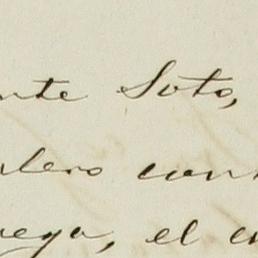 nte Soto,
alero con
uega, el c